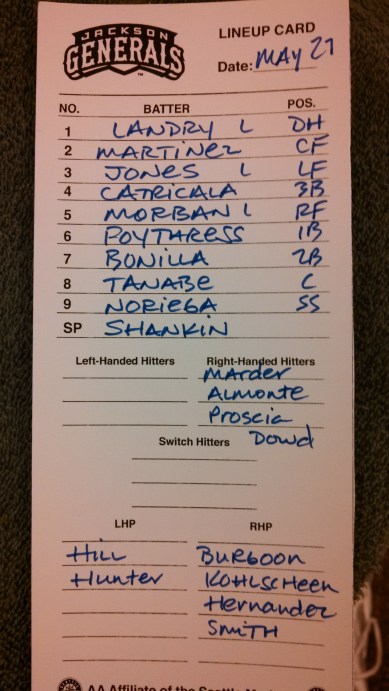 JACKSON
GENERALS
LINEUP CARD
Date: MAY 27
NO. BATTER POS.
1 LANDRY L DH
2 MARTINEZ CF
3 JONES L LF
4 CATRICALA 3B
5 MORBAN L RF
6 POYTHRESS 1B
7 BONILLA 2B
8 TANABE C
9 NORIEGA SS
SP SHANKIN
Left-Handed Hitters Right-Handed Hitters
MArder
ALmonte
Proscia
Switch Hitters Dowd
LHP RHP
HiLL BURGOON
Hunter KOHLSCHEEN
Hernandez
SMITH
AA Affiliate of the Seattle